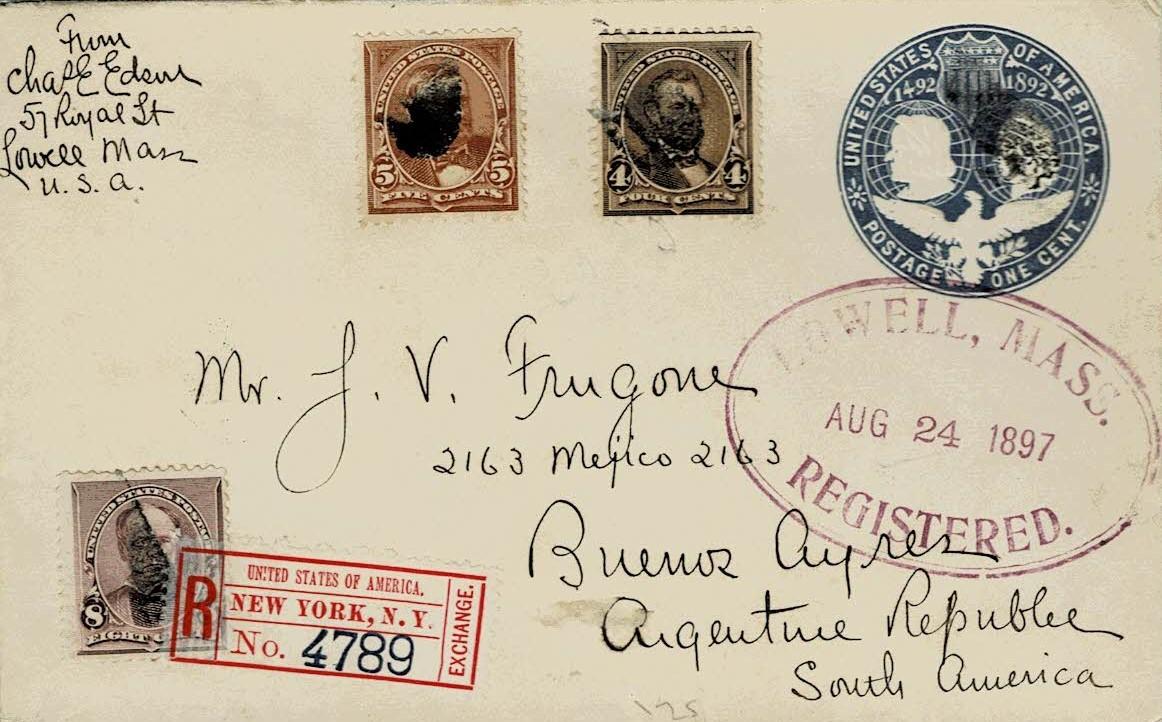 From
Chas E Edson
57 Royal St
Lowell Mass
U. S. A.
UNITED STATES POSTAGE
5 5
FIVE CENTS
UNITED STATES POSTAGE
4 4
FOUR CENTS
UNITED STATES OF AMERICA.
1492 1892
POSTAGE ONE CENT.
LOWELL, MASS.
AUG 24 1897
REGISTERED.
Mr. J. V. Frugone
2163 Mejico 2163
Buenos Ayres
Argentine Republic
South America
UNITED STATES POSTAGE
8
EIGHT
R
UNITED STATES OF AMERICA.
NEW YORK, N. Y.
No. 4789
EXCHANGE.
125